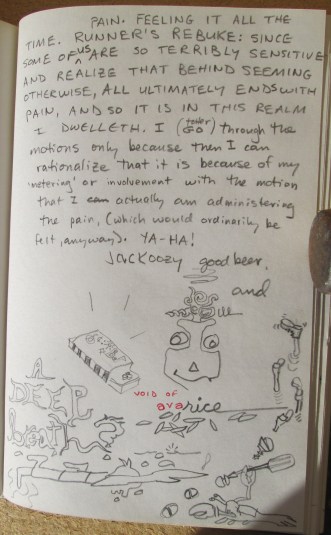 PAIN. FEELING IT ALL THE
TIME. RUNNER'S REBUKE: SINCE
SOME OF US ARE SO TERRIBLY SENSITIVE
AND REALIZE THAT BEHIND SEEMING
OTHERWISE, ALL ULTIMATELY ENDS WITH
PAIN, AND SO IT IS IN THIS REALM
I DWELLETH. I (GO) through the
motions only because then I can
rationalize that it is because of my
'metering' or involvement with the motion
that I can actually am administering
the pain, (which would ordinarily be
felt, anyway). YA-HA!
Jackoozy good beer.
and
VOID OF
avarice
A
DEEP